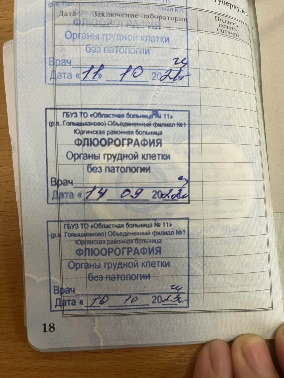 Дата Заключение лаборатории
ФЛЮОРОГРАФИЯ
Органы грудной клетки
без патологии
Врач
Дата «11» 10 20
ГБУЗ ТО «Областная больница № 11»
(р.п. Голышманово) Объединенный филиал №1
Юргинская районная больница
ФЛЮОРОГРАФИЯ
Органы грудной клетки
без патологии
Врач
Дата «14 09 2022
ГБУЗ ТО «Областная больница № 11»
(р.п. Голышманово) Объединенный филиал №1
Юргинская районная больница
ФЛЮОРОГРАФИЯ
Органы грудной клетки
без патологии
Врач
Дата « 10 10 2023
18